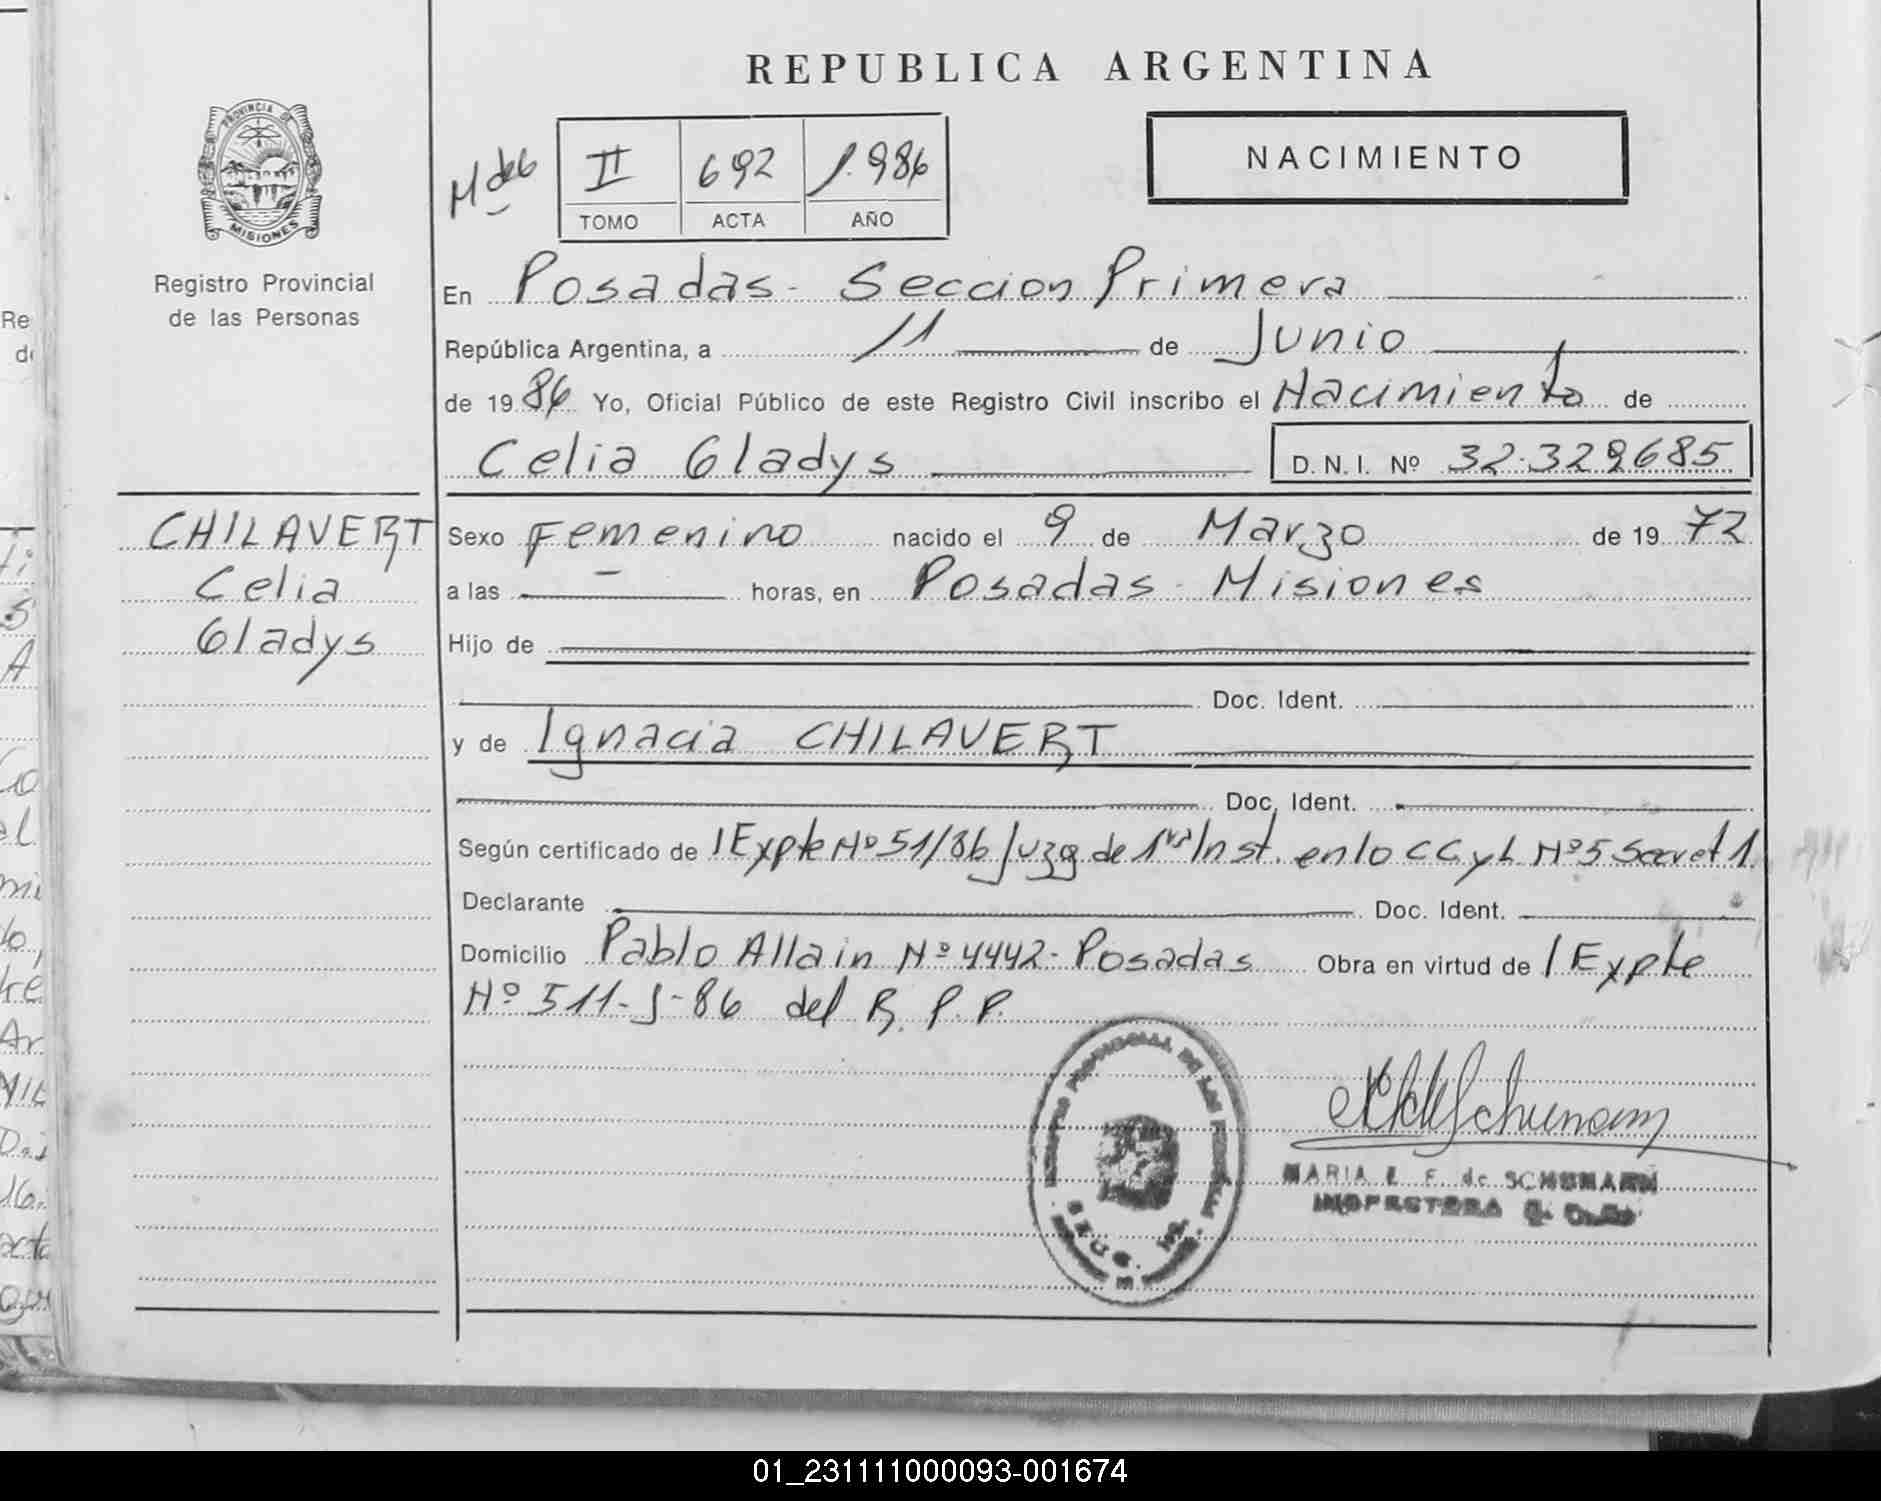 REPUBLICA ARGENTINA
PROVINCIA DE
MISIONES
Registro Provincial
de las Personas
II 692 1.986
TOMO ACTA AÑO
NACIMIENTO
En Posadas - Seccion Primera
República Argentina, a 11 de Junio
de 1986 Yo, Oficial Público de este Registro Civil inscribo el Nacimiento de
Celia Gladys D.N.I. Nº 32.329685
CHILAVERT
Celia
Gladys
Sexo Femenino nacido el 9 de Marzo de 1972
a las horas, en Posadas - Misiones
Hijo de
Doc. Ident.
y de Ignacia CHILAVERT
Doc. Ident.
Según certificado de Expte Nº 51/86 Juzg de 1ra Inst. en lo CCyL Nº5 Secret 1.
Declarante Doc. Ident.
Domicilio Pablo Allain Nº 4442 - Posadas Obra en virtud de Expte
Nº 511-J-86 del R.P.P.
PROVINCIAL DE LAS
MARIA E. F. de SCHUMANN
INSPECTORA
01_231111000093-001674